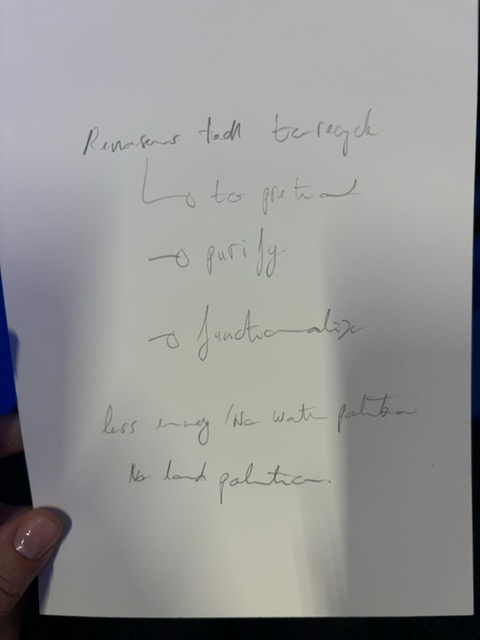 tech to recycle
to pretreat
purify
functionalize
less energy / No water pollution
No land pollution.